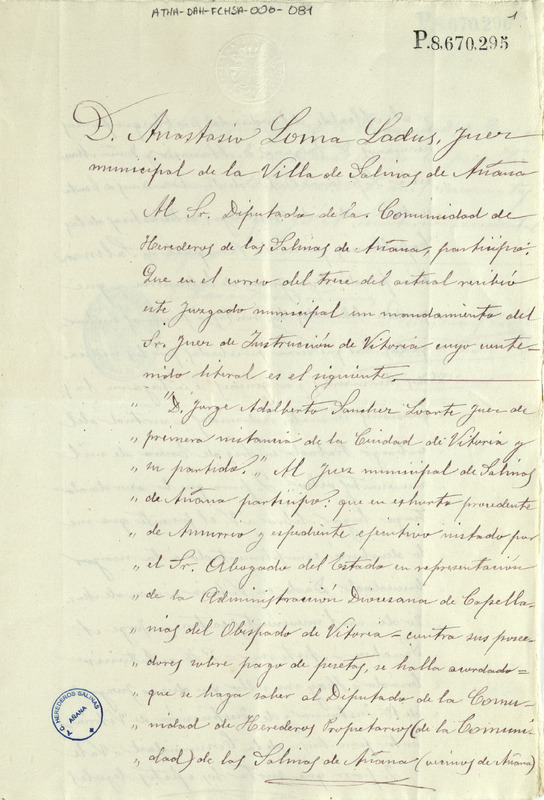 ATHA-DAH-FCHSA-006-081
1
P.8,670,295
D. Anastasio Loma Ladus, Juez
municipal de la Villa de Salinas de Añana
Al Sr. Diputado de la Comunidad de
Herederos de las Salinas de Añana, participo:
Que en el correo del trece del actual recibió
este Juzgado municipal un mandamiento del
Sr. Juez de Instrucción de Vitoria cuyo conte-
nido literal es el siguiente.
" "D. Jorge Adalberto Sanchez Loarte Juez de
" primera instancia de la Ciudad de Vitoria y
" su partido." " Al Juez municipal de Salinas
" de Añana participo: que en exhorto procedente
" de Amurrio y espediente ejecutivo instado por
" el Sr. Abogado del Estado en representación
" de la Administración Diocesana de Capella-
" nias del Obispado de Vitoria = contra sus posee-
" dores sobre pago de pesetas, se halla acordado =
" que se haga saber al Diputado de la Comu-
" nidad de Herederos Propietarios (de la Comuni-
" dad) de las Salinas de Añana (vecinos de Añana)
C. HEREDEROS SALINAS
AÑANA